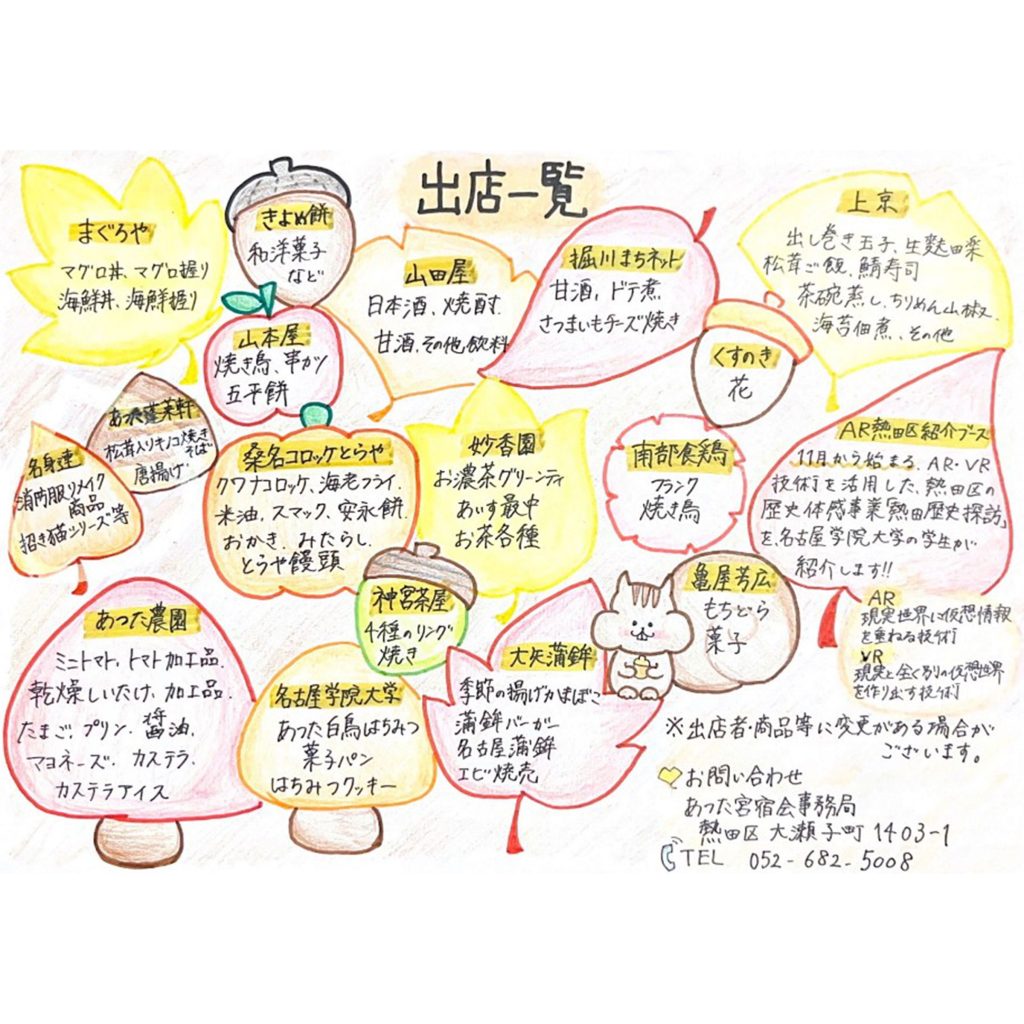 出店一覧
まぐろや
マグロ丼、マグロ握り
海鮮丼、海鮮握り
きよめ餅
和洋菓子
など
山田屋
日本酒、焼酎
甘酒、その他飲料
堀川まちネット
甘酒、ドテ煮
さつまいもチーズ焼き
上京
出し巻き玉子、生麩田楽
松茸ご飯、鯖寿司
茶碗蒸し、ちりめん山椒、
海苔佃煮、その他
山本屋
焼き鳥、串カツ
五平餅
くすのき
花
あつた蓬莱軒
松茸入りキノコ焼き
そば
唐揚げ
名身連
消防服リメイク
商品
招き猫シリーズ等
桑名コロッケとらや
クワナコロッケ、海老フライ、
米油、スマック、安永餅、
おかき、みたらし、
とらや饅頭
妙香園
お濃茶グリーンティ
あいす最中
お茶各種
南部食鶏
フランク
焼き鳥
AR熱田区紹介ブース
11月から始まる、AR・VR
技術を活用した、熱田区の
歴史体感事業「熱田歴史探訪」
を、名古屋学院大学の学生が
紹介します!!
AR
現実世界に仮想情報
を重ねる技術
VR
現実と全く別の仮想世界
を作り出す技術
神宮茶屋
4種のリング
焼き
亀屋芳広
もちどら
菓子
あった農園
ミニトマト、トマト加工品、
乾燥しいたけ、加工品、
たまご、プリン、醤油、
マヨネーズ、カステラ、
カステラアイス
名古屋学院大学
あった白鳥はちみつ
菓子パン
はちみつクッキー
大矢蒲鉾
季節の揚げかまぼこ
蒲鉾バーガー
名古屋蒲鉾
エビ焼売
※出店者・商品等に変更がある場合が
ございます。
お問い合わせ
あった宮宿会事務局
熱田区 大瀬子町1403-1
TEL 052-682-5008